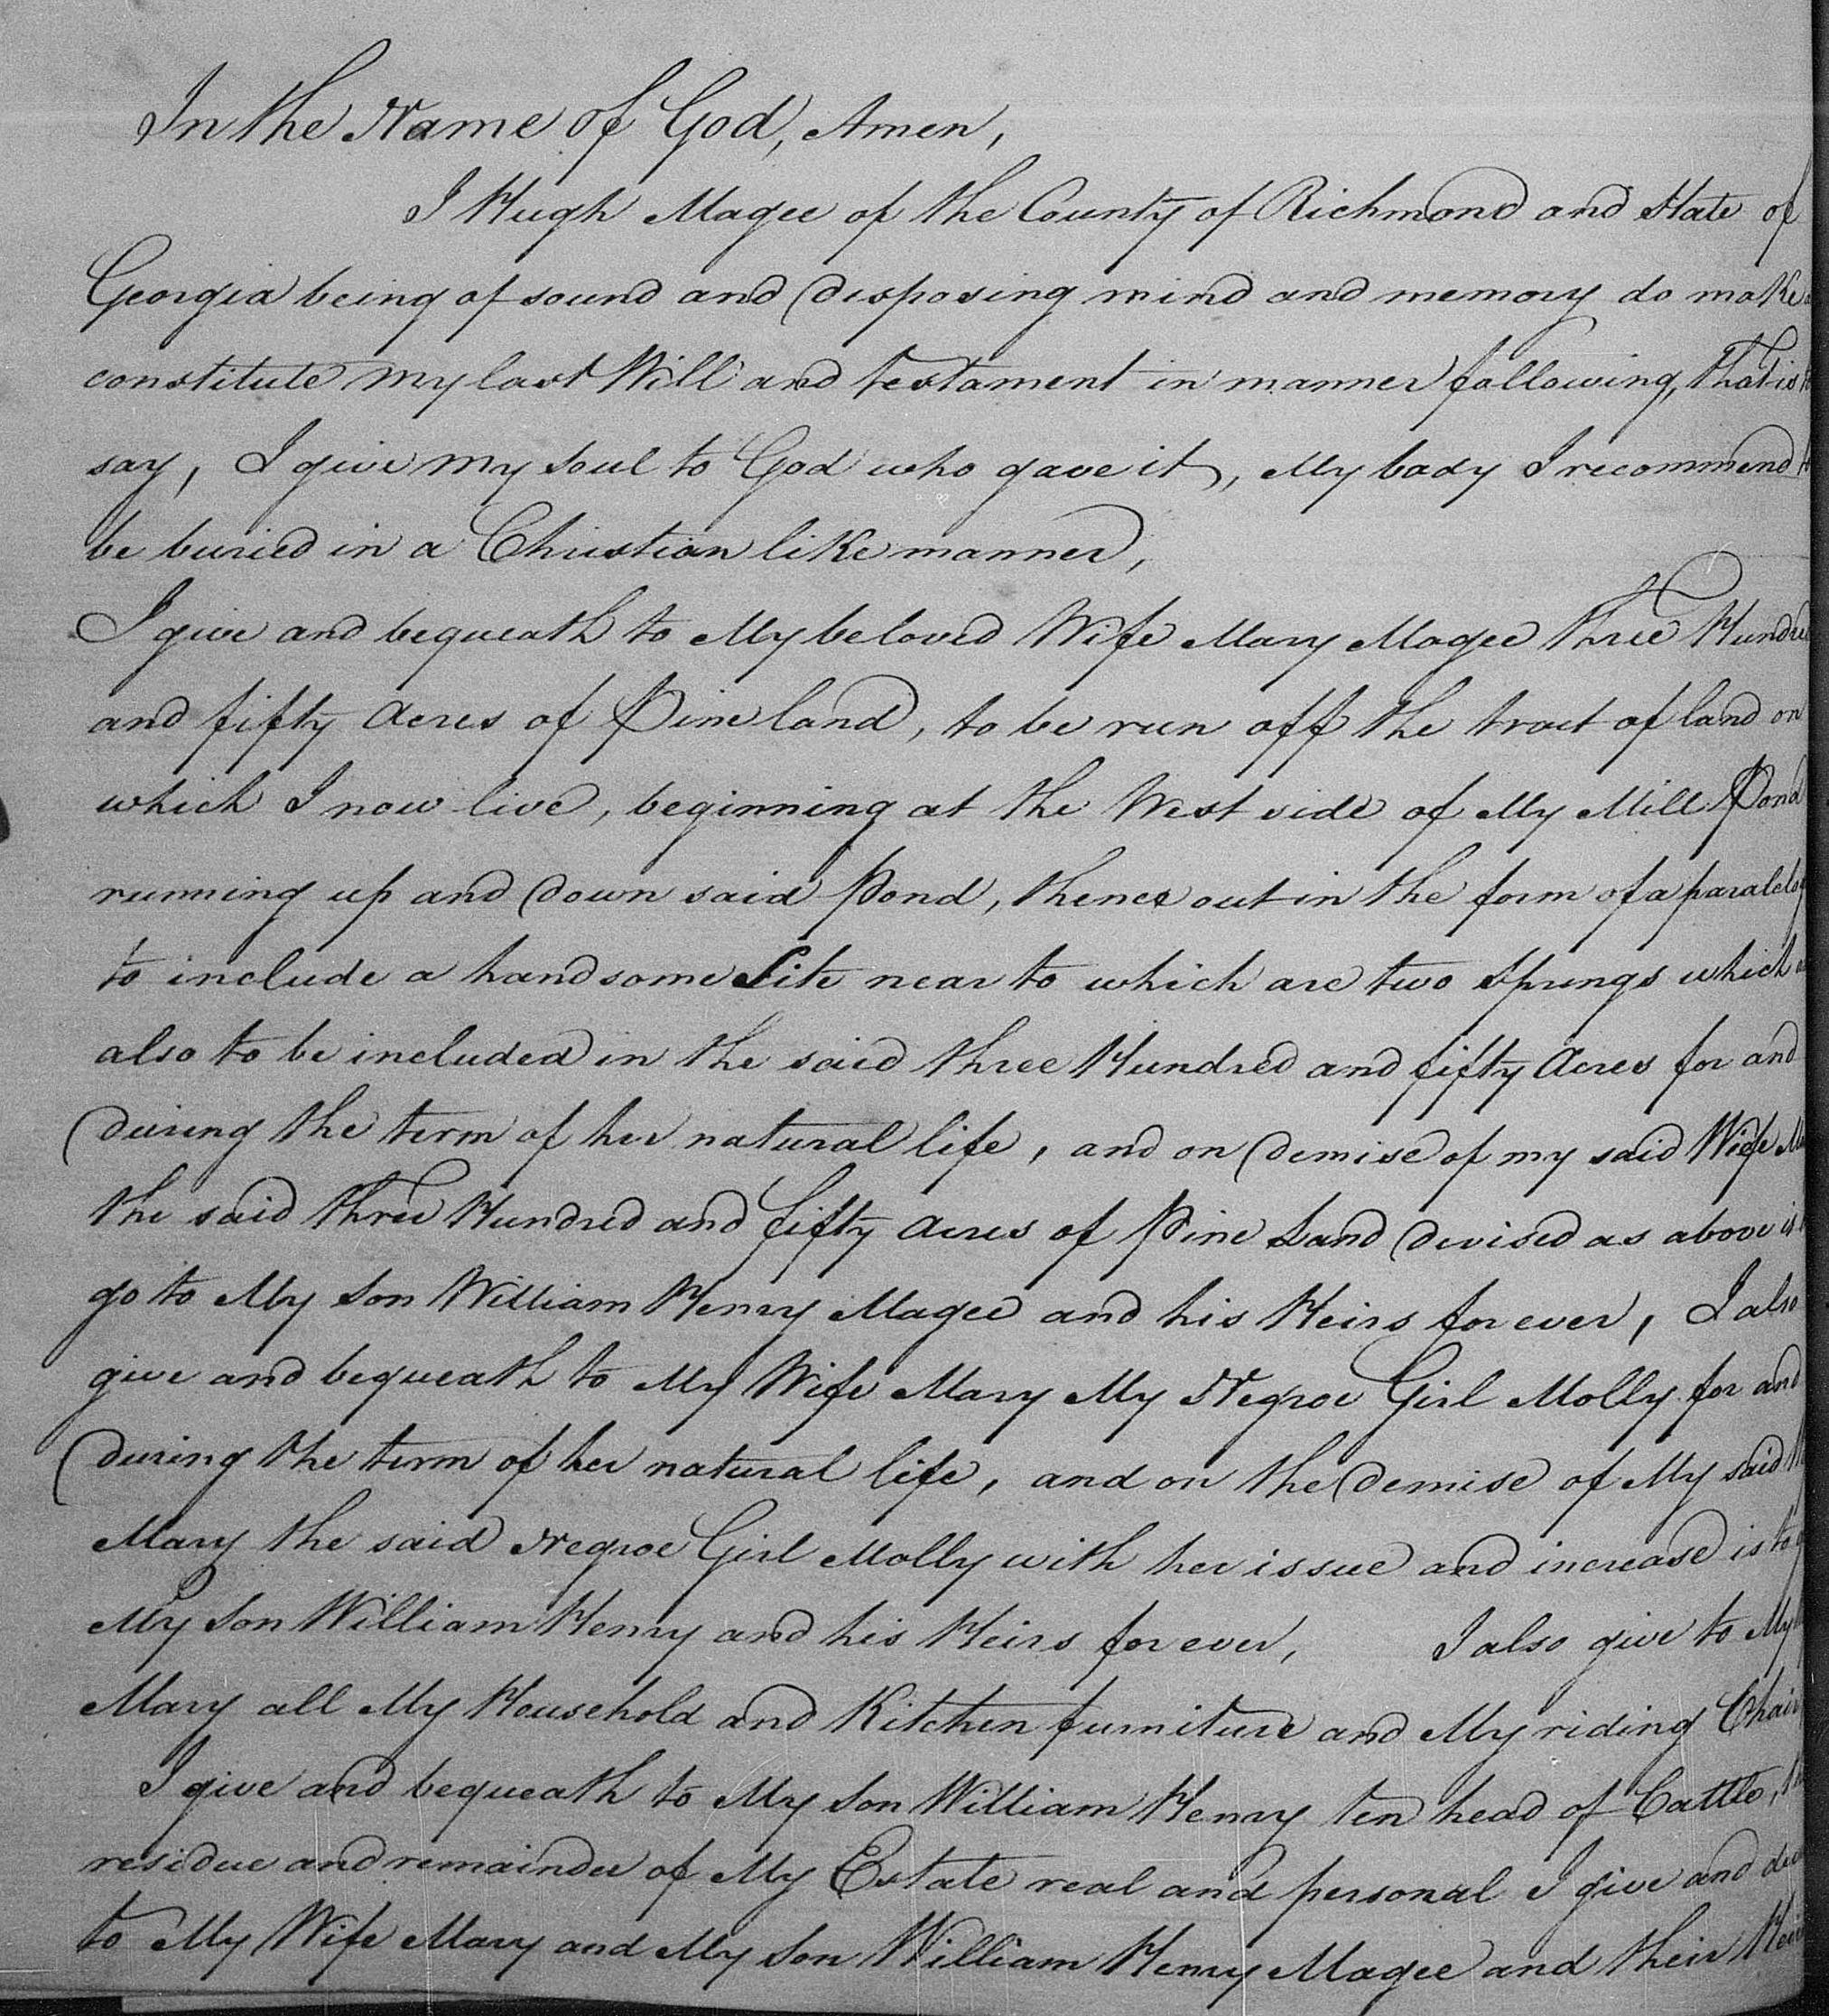 In the Name of God, Amen,
I Hugh Magee of the County of Richmond and State of
Georgia being of sound and disposing mind and memory do make
constitute my last Will and testament in manner following, that is
say, I give my soul to God who gave it, My body I recommend
be buried in a Christian like manner,
I give and bequeath to My beloved Wife Mary Magee three Hundred
and fifty Acres of Pine land, to be run off the tract of land on
which I now live, beginning at the West side of My Mill Pond
running up and down said Pond, thence out in the form of a paralelog
to include a handsome Site near to which are two Springs which
also to be included in the said three Hundred and fifty Acres for and
during the term of her natural life, and on demise of my said Wife
the said three Hundred and fifty Acres of Pine Land devised as above is
go to My Son William Henry Magee and his Heirs for ever, I also
give and bequeath to My Wife Mary My Negroe Girl Molly for and
during the term of her natural life, and on the demise of My said
Mary the said Negroe Girl Molly with her issue and increase is to
My Son William Henry and his Heirs for ever, I also give to My
Mary all My Household and Kitchen furniture and My riding Chair
I give and bequeath to My Son William Henry ten head of Cattle,
residue and remainder of My Estate real and personal I give and
to My Wife Mary and My Son William Henry Magee and their Heirs